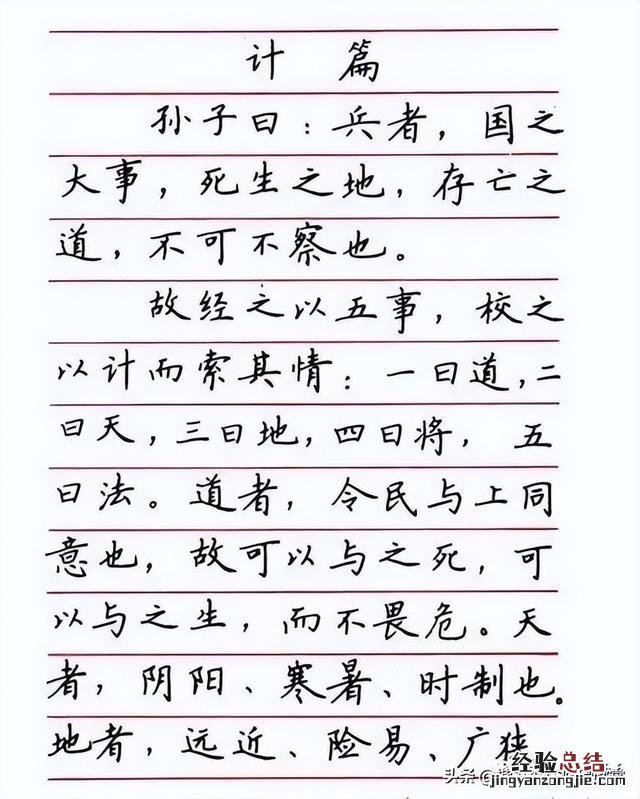 计 篇
孙子曰：兵者，国之
大事，死生之地，存亡之
道，不可不察也。
故经之以五事，校之
以计而索其情：一曰道，二
曰天，三曰地，四曰将，五
曰法。道者，令民与上同
意也，故可以与之死，可
以与之生，而不畏危。天
者，阴阳、寒暑、时制也。
地者，远近、险易、广狭
经验总结
头条
jingyanzongjie.com